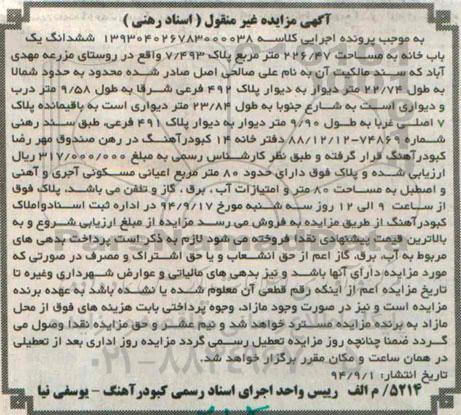 آگهی مزایده غیر منقول ( اسناد رهنی )
به موجب پرونده اجرایی کلاسه ۱۳۹۳۰۴۰۲۶۷۸۳۰۰۰۰۳۸ ششدانگ یک
باب خانه به مساحت ۲۲۶/۴۷ متر مربع پلاک ۷/۴۹۳ واقع در روستای مزرعه مهدی
آباد که سند مالکیت آن به نام علی صالحی اصل صادر شده محدود به حدود شمالا
به طول ۲۲/۷۴ متر دیوار به دیوار پلاک ۴۹۲ فرعی شرقا به طول ۹/۵۸ متر درب
و دیواری است به شارع جنوبا به طول ۲۳/۸۴ متر دیواری است به باقیمانده پلاک
۷ اصلی غربا به طول ۹/۹۰ متر دیوار به دیوار پلاک ۴۹۱ فرعی طبق سند رهنی
شماره ۷۴۸۶۹-۸۸/۱۲/۱۲ دفتر خانه ۱۴ کبودرآهنگ در رهن صندوق مهر رضا
کبودرآهنگ قرار گرفته و طبق نظر کارشناس رسمی به مبلغ ۳۱۷/۰۰۰/۰۰۰ ریال
ارزیابی شده و پلاک فوق دارای حدود ۸۰ متر مربع اعیانی مسکونی آجری و آهنی
و اصطبل به مساحت ۸۰ متر و امتیازات آب ، برق ، گاز و تلفن می باشد. پلاک فوق
از ساعت ۹ الی ۱۲ روز سه شنبه مورخ ۹۴/۹/۱۷ در اداره ثبت اسنادواملاک
کبودرآهنگ از طریق مزایده به فروش می رسد مزایده از مبلغ ارزیابی شروع و به
بالاترین قیمت پیشنهادی نقدا فروخته می شود لازم به ذکر است پرداخت بدهی های
مربوط به آب، برق، گاز اعم از حق انشعاب و یا حق اشتراک و مصرف در صورتی که
مورد مزایده دارای آنها باشد و نیز بدهی های مالیاتی و عوارض شهرداری وغیره تا
تاریخ مزایده اعم از اینکه رقم قطعی آن معلوم شده یا نشده باشد به عهده برنده
مزایده است و نیز در صورت وجود مازاد، وجوه پرداختی بابت هزینه های فوق از محل
مازاد به برنده مزایده مسترد خواهد شد و نیم عشر و حق مزایده نقدا وصول می
گردد ضمنا چنانچه روز مزایده تعطیل رسمی گردد مزایده روز اداری بعد از تعطیلی
در همان ساعت و مکان مقرر برگزار خواهد شد.
تاریخ انتشار: ۹۴/۹/۱
۵۲۱۴/ م الف رییس واحد اجرای اسناد رسمی کبودرآهنگ - یوسفی نیا